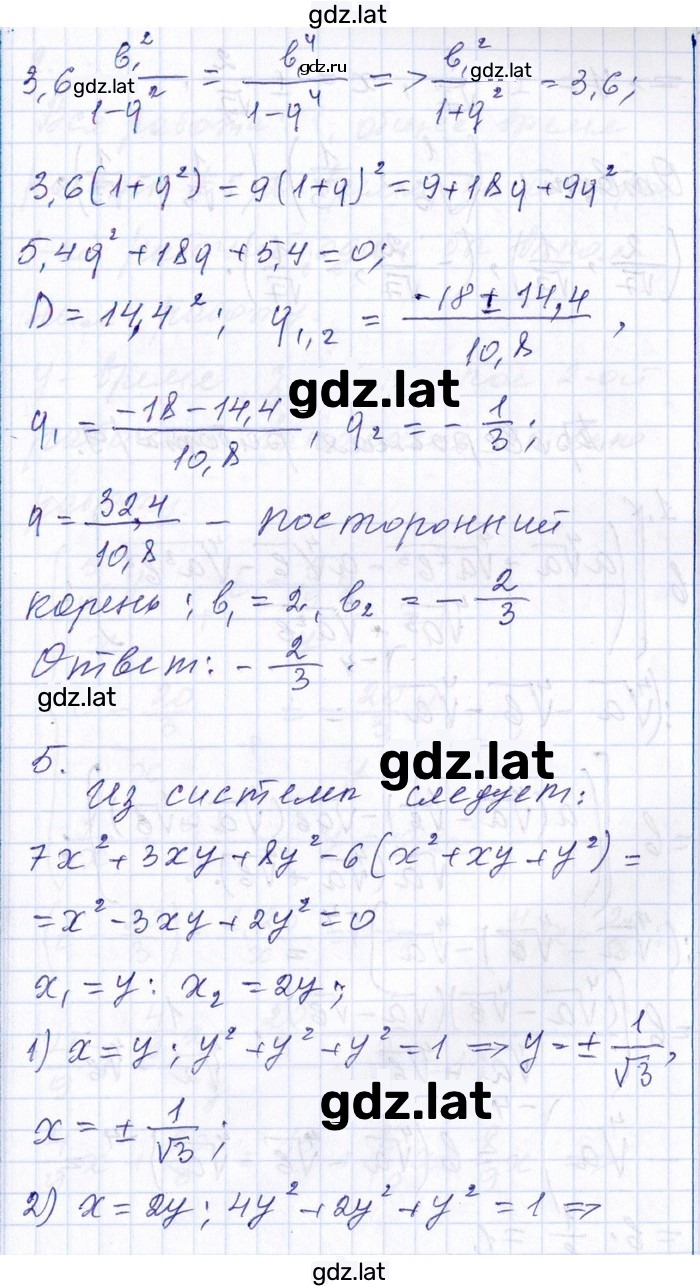 gdz.lat
3,6 b₁²/(1-q²) = b₁⁴/(1-q⁴) => b₁²/(1+q²) = 3,6;
gdz.lat gdz.ru gdz.lat
3,6(1+q²) = 9(1+q)² = 9+18q+9q²
5,4q²+18q+5,4=0;
D = 14,4²; q₁,₂ = (-18 ± 14,4)/10,8,
gdz.lat
q₁ = (-18-14,4)/10,8, q₂ = -1/3;
q = 32,4/10,8 – посторонний
корень; b₁ = 2, b₂ = -2/3
Ответ: -2/3.
gdz.lat
5.
gdz.lat
Из системы следует:
7x²+3xy+8y²-6(x²+xy+y²)=
=x²-3xy+2y²=0
x₁=y: x₂=2y;
1) x=y; y²+y²+y²=1 => y=±1/√3,
gdz.lat
x=±1/√3;
2) x=2y; 4y²+2y²+y²=1 =>
gdz.lat